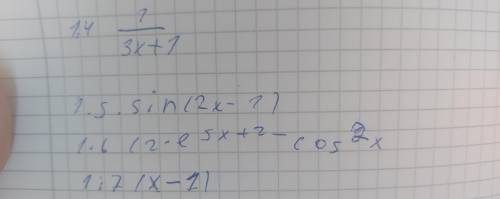 1.4 1/(3x+1)
1.5. sin(2x-1)
1.6 (2·e^5x+2 - cos^2x
1.7 (x-1)